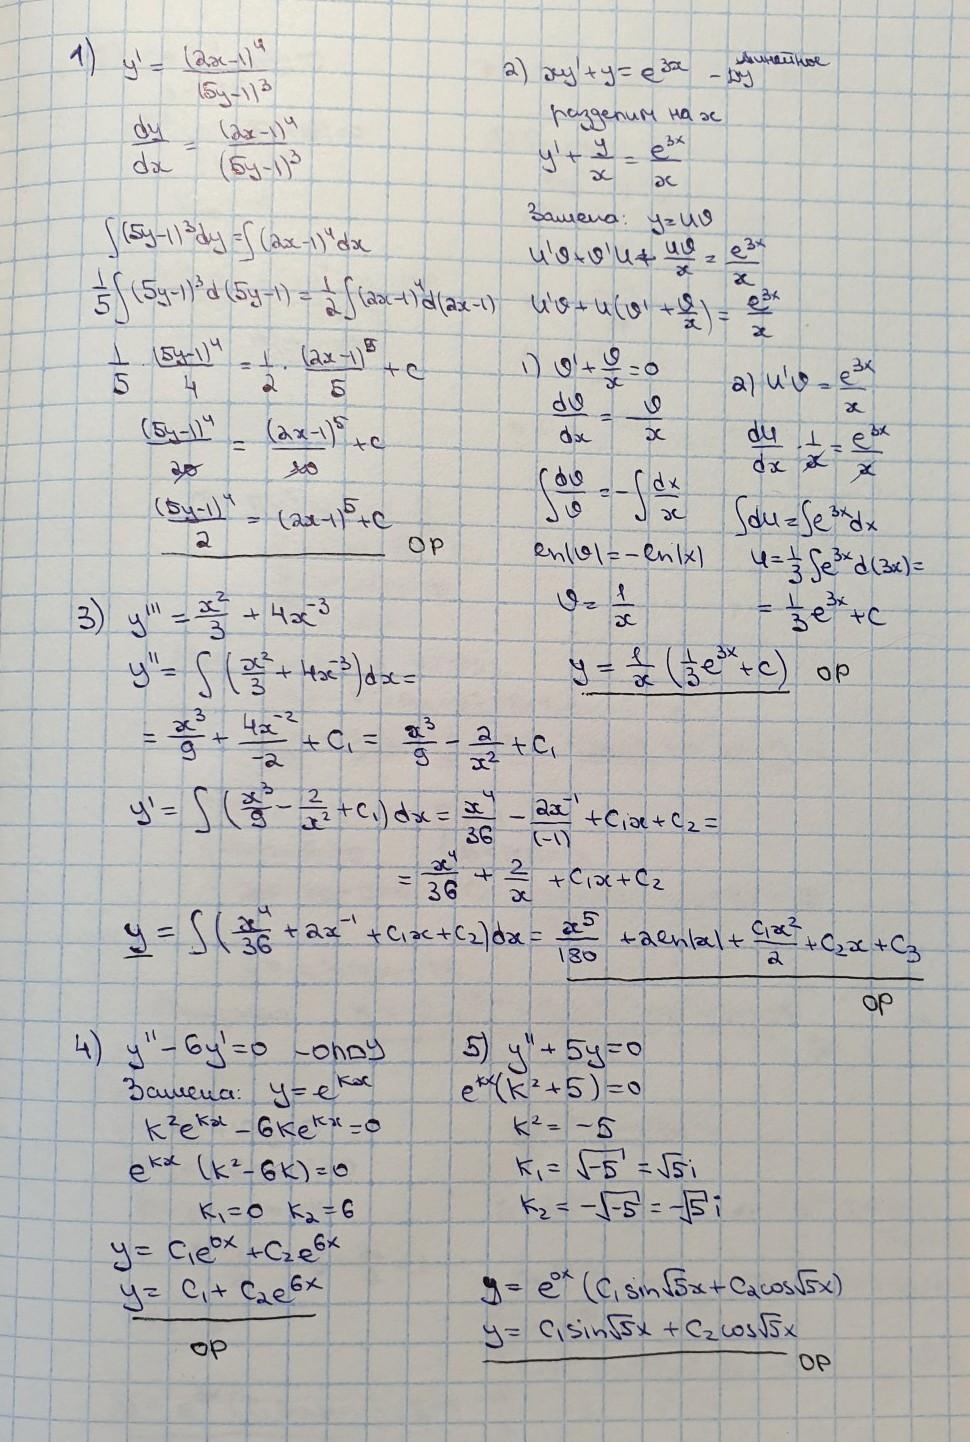 1) y' = (2x-1)^4 / (5y-1)^3
dy/dx = (2x-1)^4 / (5y-1)^3
∫(5y-1)^3 dy = ∫(2x-1)^4 dx
1/5 ∫(5y-1)^3 d(5y-1) = 1/2 ∫(2x-1)^4 d(2x-1)
1/5 · (5y-1)^4 / 4 = 1/2 · (2x-1)^5 / 5 + C
(5y-1)^4 / 20 = (2x-1)^5 / 10 + C
(5y-1)^4 / 2 = (2x-1)^5 + C
ОР
2) xy' + y = e^{3x} - линейное ДУ
разделим на x
y' + y/x = e^{3x}/x
Замена: y = uϑ
u'ϑ + ϑ'u + uϑ/x = e^{3x}/x
u'ϑ + u(ϑ' + ϑ/x) = e^{3x}/x
1) ϑ' + ϑ/x = 0
dϑ/dx = - ϑ/x
∫ dϑ/ϑ = - ∫ dx/x
ln|ϑ| = - ln|x|
ϑ = 1/x
2) u'ϑ = e^{3x}/x
du/dx · 1/x = e^{3x}/x
∫du = ∫e^{3x}dx
u = 1/3 ∫e^{3x} d(3x) =
= 1/3 e^{3x} + C
y = 1/x (1/3 e^{3x} + C) ОР
3) y''' = x^2/3 + 4x^{-3}
y'' = ∫(x^2/3 + 4x^{-3})dx =
= x^3/9 + 4x^{-2}/-2 + C₁ = x^3/9 - 2/x^2 + C₁
y' = ∫(x^3/9 - 2/x^2 + C₁)dx = x^4/36 - 2x^{-1}/(-1) + C₁x + C₂ =
= x^4/36 + 2/x + C₁x + C₂
y = ∫(x^4/36 + 2x^{-1} + C₁x + C₂)dx = x^5/180 + 2ln|x| + C₁x^2/2 + C₂x + C₃
ОР
4) y'' - 6y' = 0 - ОЛДУ
Замена: y = e^{kx}
k^2e^{kx} - 6ke^{kx} = 0
e^{kx} (k^2 - 6k) = 0
k₁ = 0 k₂ = 6
y = C₁e^{0x} + C₂e^{6x}
y = C₁ + C₂e^{6x}
ОР
5) y'' + 5y = 0
e^{kx}(k^2 + 5) = 0
k^2 = -5
k₁ = √-5 = √5 i
k₂ = -√-5 = -√5 i
y = e^{0x} (C₁ sin√5x + C₂ cos√5x)
y = C₁ sin√5x + C₂ cos√5x
ОР